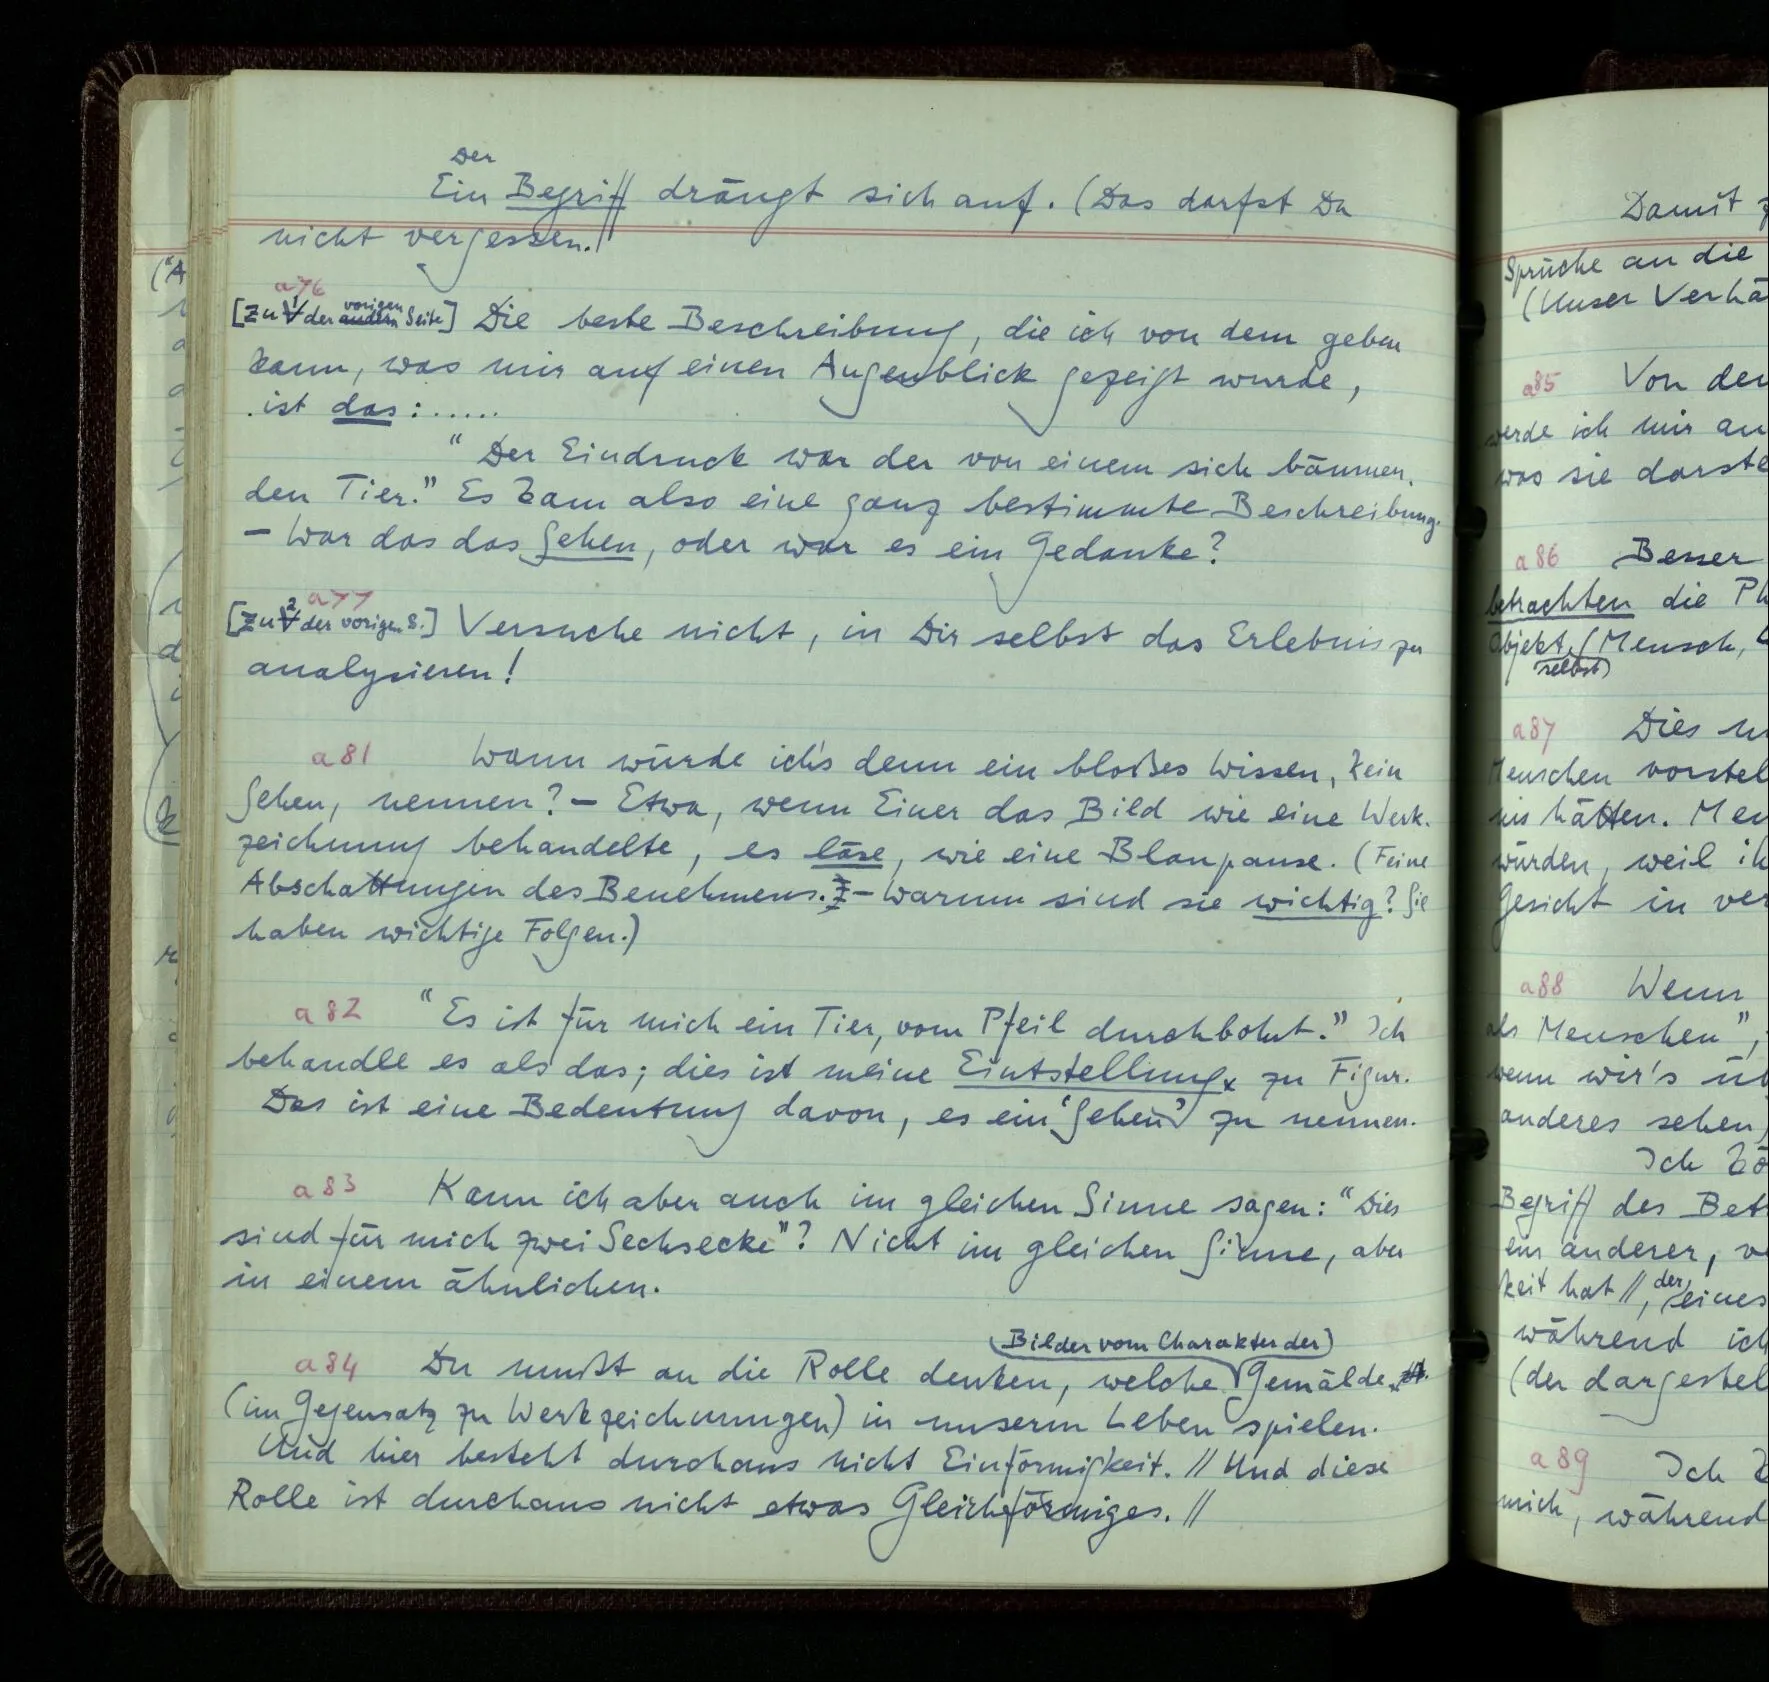 Der
Ein Begriff drängt sich auf. (Das darfst Du
nicht vergessen.)
a76
[Zu ∀1 der andern vorigen Seite] Die beste Beschreibung, die ich von dem geben
kann, was mir auf einen Augenblick gezeigt wurde,
ist das: ......
"Der Eindruck war der von einem sich bäumen-
den Tier." Es kam also eine ganz bestimmte Beschreibung.
– War das das Sehen, oder war es ein Gedanke?
a77
[Zu ∀2 der vorigen S.] Versuche nicht, in Dir selbst das Erlebnis zu
analysieren!
a81 Wann würde ich's denn ein bloßes Wissen, kein
Sehen, nennen? – Etwa, wenn Einer das Bild wie eine Werk-
zeichnung behandelte, es läse, wie eine Blaupause. (Feine
Abschattungen des Benehmens. – Warum sind sie wichtig? Sie
haben wichtige Folgen.)
a82 "Es ist für mich ein Tier, vom Pfeil durchbohrt." Ich
behandle es als das; dies ist meine Einstellung zu Figur.
Das ist eine Bedeutung davon, es ein 'Sehen' zu nennen.
a83 Kann ich aber auch im gleichen Sinne sagen: "Dies
sind für mich zwei Sechsecke"? Nicht im gleichen Sinne, aber
in einem ähnlichen.
Bilder vom Charakter der
a84 Du mußt an die Rolle denken, welche Gemälde
(im Gegensatz zu Werkzeichnungen) in unserm Leben spielen.
Und hier besteht durchaus nicht Einförmigkeit. // Und diese
Rolle ist durchaus nicht etwas Gleichförmiges. //
Damit
Sprüche an die
(Unser Verhä
a85 Von den
werde ich mir an
was sie darste
a86 Besser
betrachten die Ph
Objekt (Mensch,
selbst
a87 Dies
Menschen vorstel
uns hätten. Men
würden, weil ih
Gesicht in ver
a88 Wenn
als Menschen",
wenn wir's üb
anderes sehen
Ich kö
Begriff des Bet
ein anderer, v
keit hat //, der eines
während ich
(der dargestel
a89 Ich k
mich, während